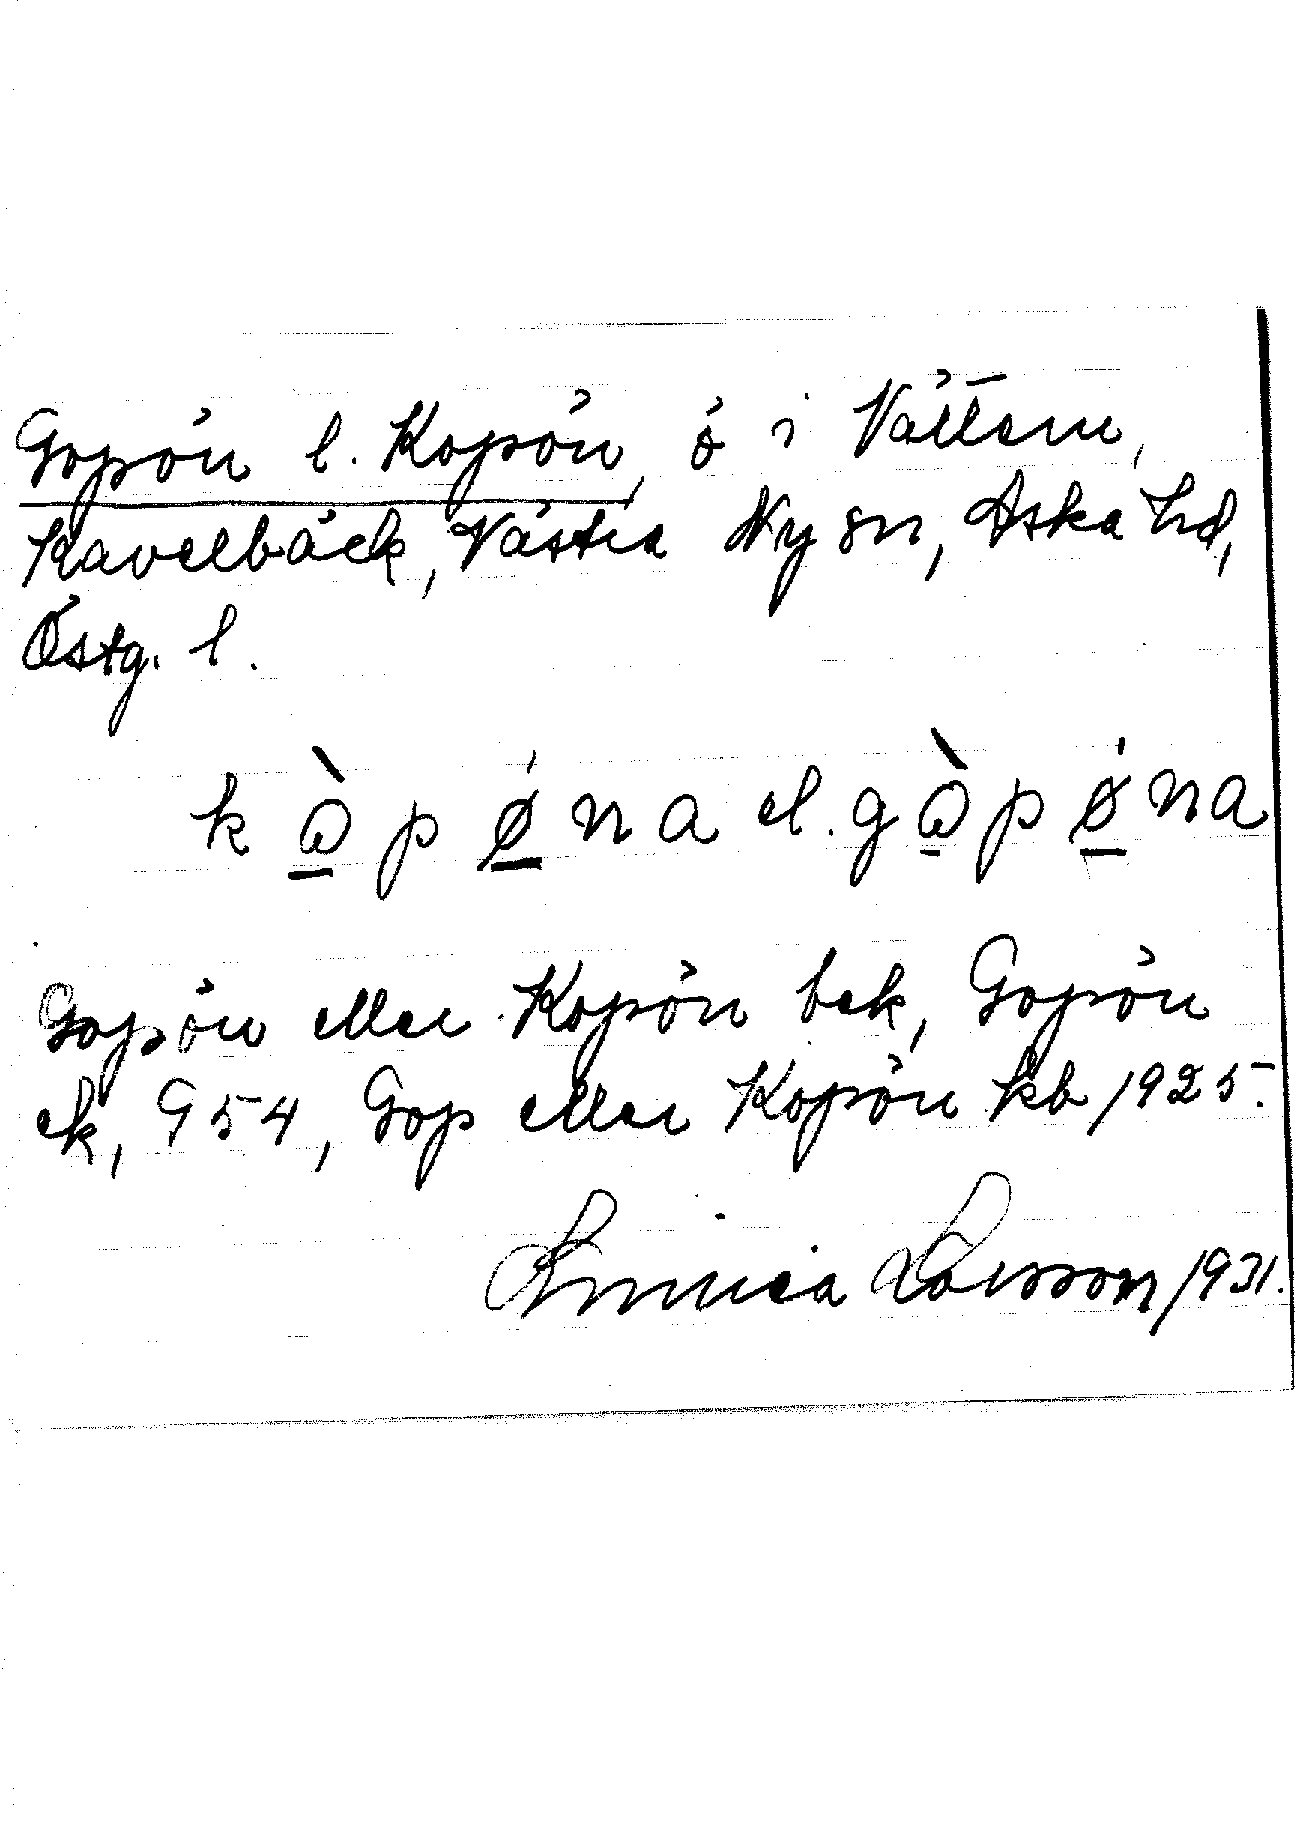 Gopön l. Kopön, ö i Vättern,
Kavelbäck, Västra Ny sn, Aska hd,
Östg. l.
k ò̱ p ǿ̱ n a el. g ò̱ p ǿ̱ n a
Gopön eller Kopön bek, Gopön
ek, G 54, Gop eller Kopön kb 1925.
Linnea Larsson 1931.